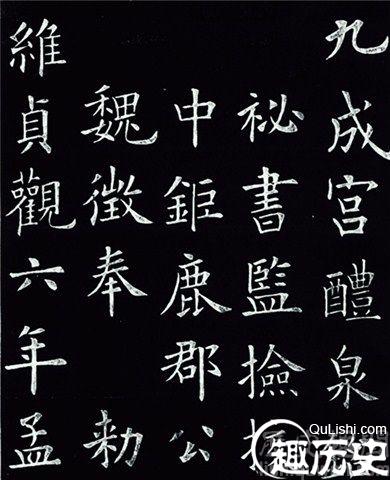 九成宫醴泉
祕書監撿
中鉅鹿郡公
魏徵奉 勑
維貞觀六年孟
QuLishi.com
趣历史